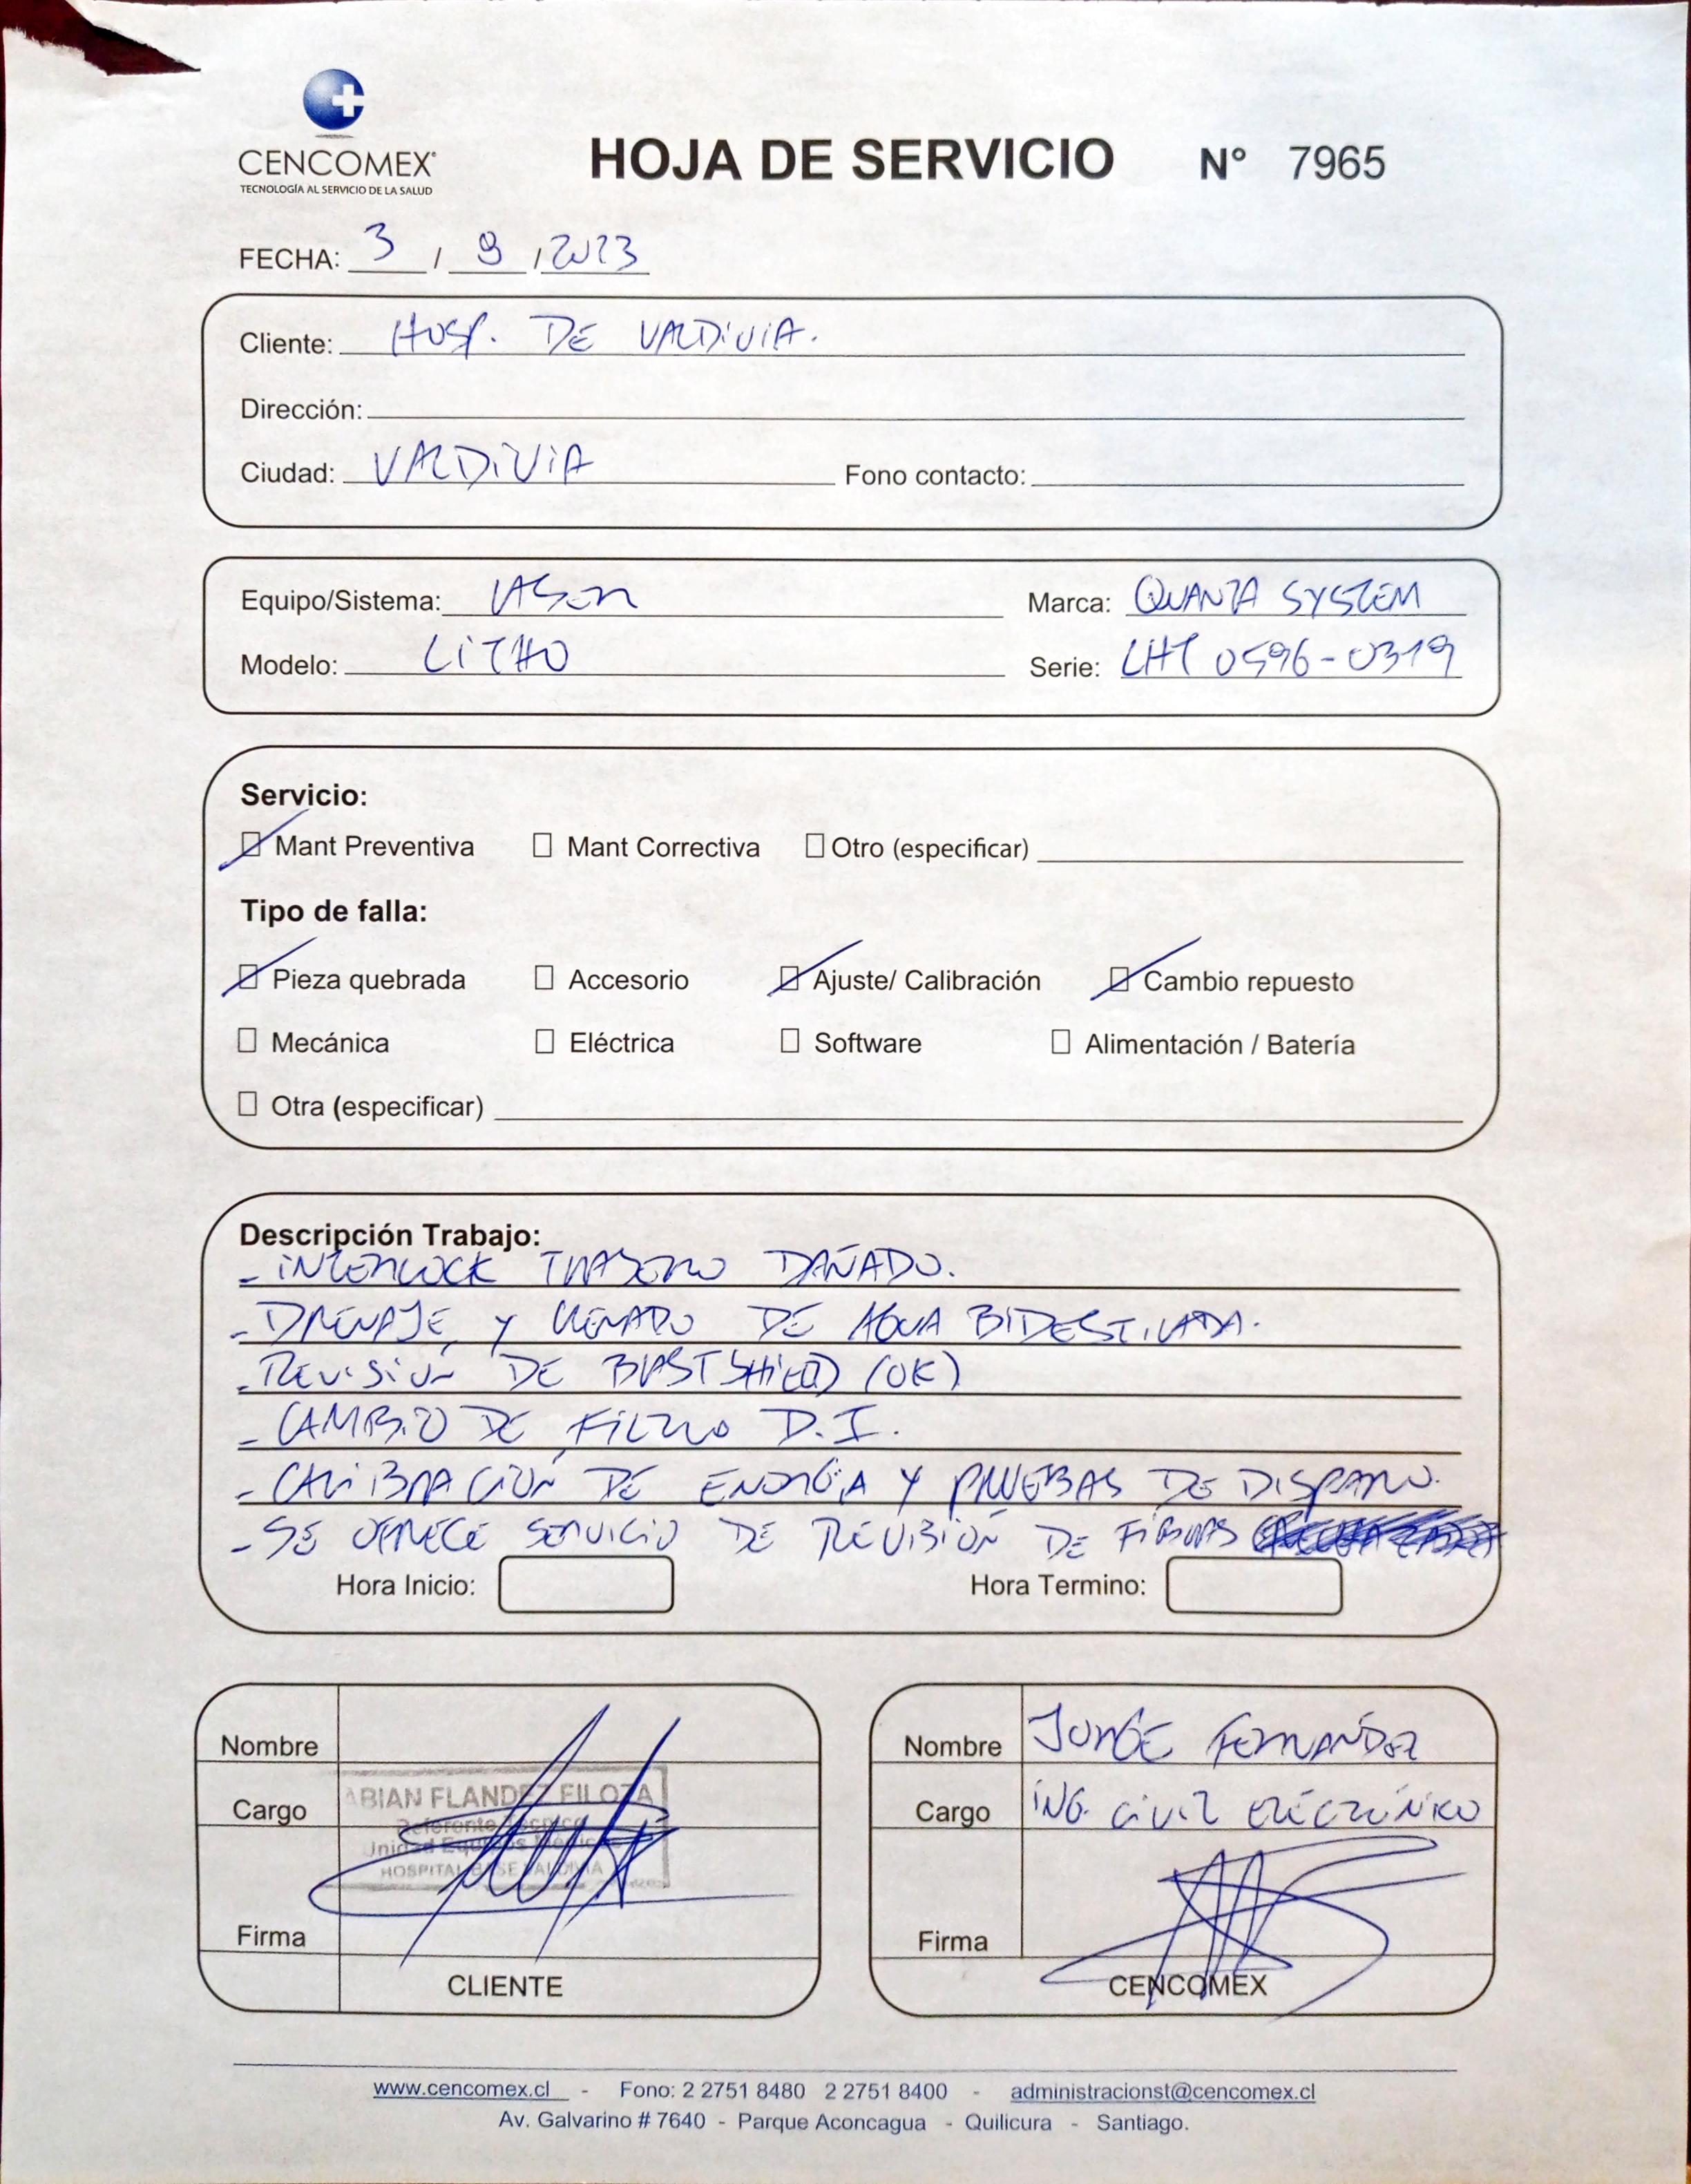 CENCOMEX
TECNOLOGÍA AL SERVICIO DE LA SALUD
HOJA DE SERVICIO N° 7965
FECHA: 3 / 9 / 2023
Cliente: HOSP. DE VALDIVIA.
Dirección:
Ciudad: VALDIVIA Fono contacto:
Equipo/Sistema: LASER Marca: QUANTA SYSTEM
Modelo: LITHO Serie: LHT 0596-0319
Servicio:
Mant Preventiva Mant Correctiva Otro (especificar)
Tipo de falla:
Pieza quebrada Accesorio Ajuste/ Calibración Cambio repuesto
Mecánica Eléctrica Software Alimentación / Batería
Otra (especificar)
Descripción Trabajo:
- INTERLOCK TRASERO DAÑADO.
- DRENAJE Y LLENADO DE AGUA BIDESTILADA.
- REVISIÓN DE BLASTSHIELD (OK)
- CAMBIO DE FILTRO D.I.
- CALIBRACIÓN DE ENERGÍA Y PRUEBAS DE DISPARO.
- SE OFRECE SERVICIO DE REVISIÓN DE FIBRAS
Hora Inicio: Hora Termino:
Nombre
Cargo
ABIAN FLANDEZ FILOZA
Referente Técnico
Unidad Equipos Médicos
HOSPITAL BASE VALDIVIA
Firma
CLIENTE
Nombre JORGE FERNANDEZ
Cargo ING. CIVIL ELÉCTRÓNICO
Firma
CENCOMEX
www.cencomex.cl - Fono: 2 2751 8480 2 2751 8400 - administracionst@cencomex.cl
Av. Galvarino # 7640 - Parque Aconcagua - Quilicura - Santiago.